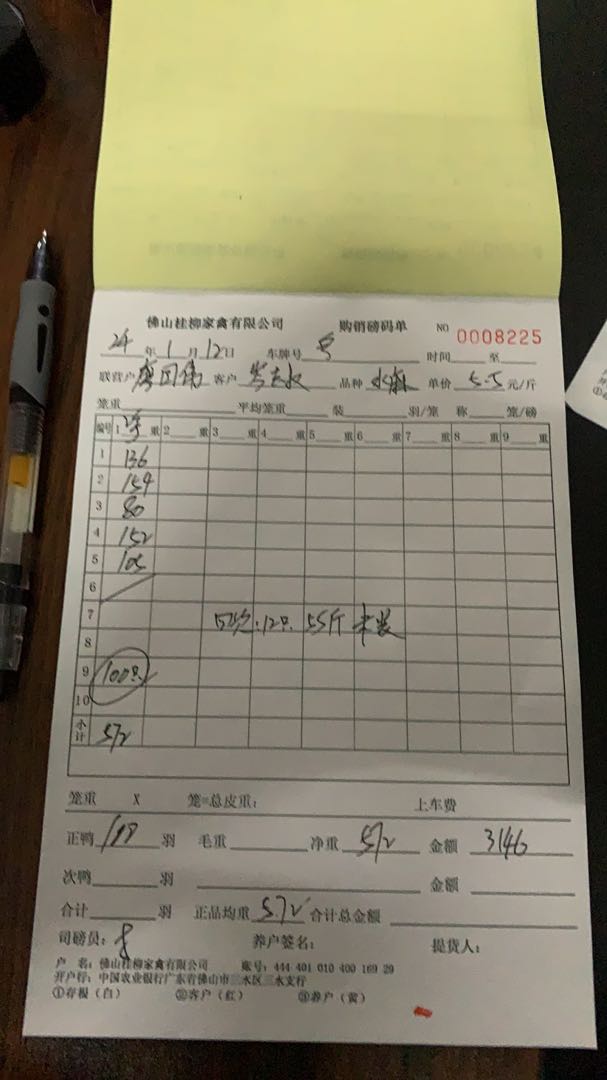 佛山桂柳家禽有限公司 购销磅码单 NO 0008225
24 年 1 月 12 日 车牌号 时间 至
联营户 廖国伟 客户 品种 单价 5.5 元/斤
笼重 平均笼重 装 羽/笼 称 笼/磅
编号 1 净 重 2 重 3 重 4 重 5 重 6 重 7 重 8 重 9 重
1 136
2 154
3 80
4 152
5 105
6
7 12只 55斤 未装
8
9 100只
10
小计 572
笼重 X 笼=总皮重: 上车费
正鸭 100 羽 毛重 净重 572 金额 3146
次鸭 羽 金额
合计 羽 正品均重 5.72 合计总金额
司磅员: 养户签名: 提货人:
户 名: 佛山桂柳家禽有限公司 账号: 444 401 010 400 169 29
开户行: 中国农业银行广东省佛山市三水区三水支行
①存根（白） ②客户（红） ③养户（黄）